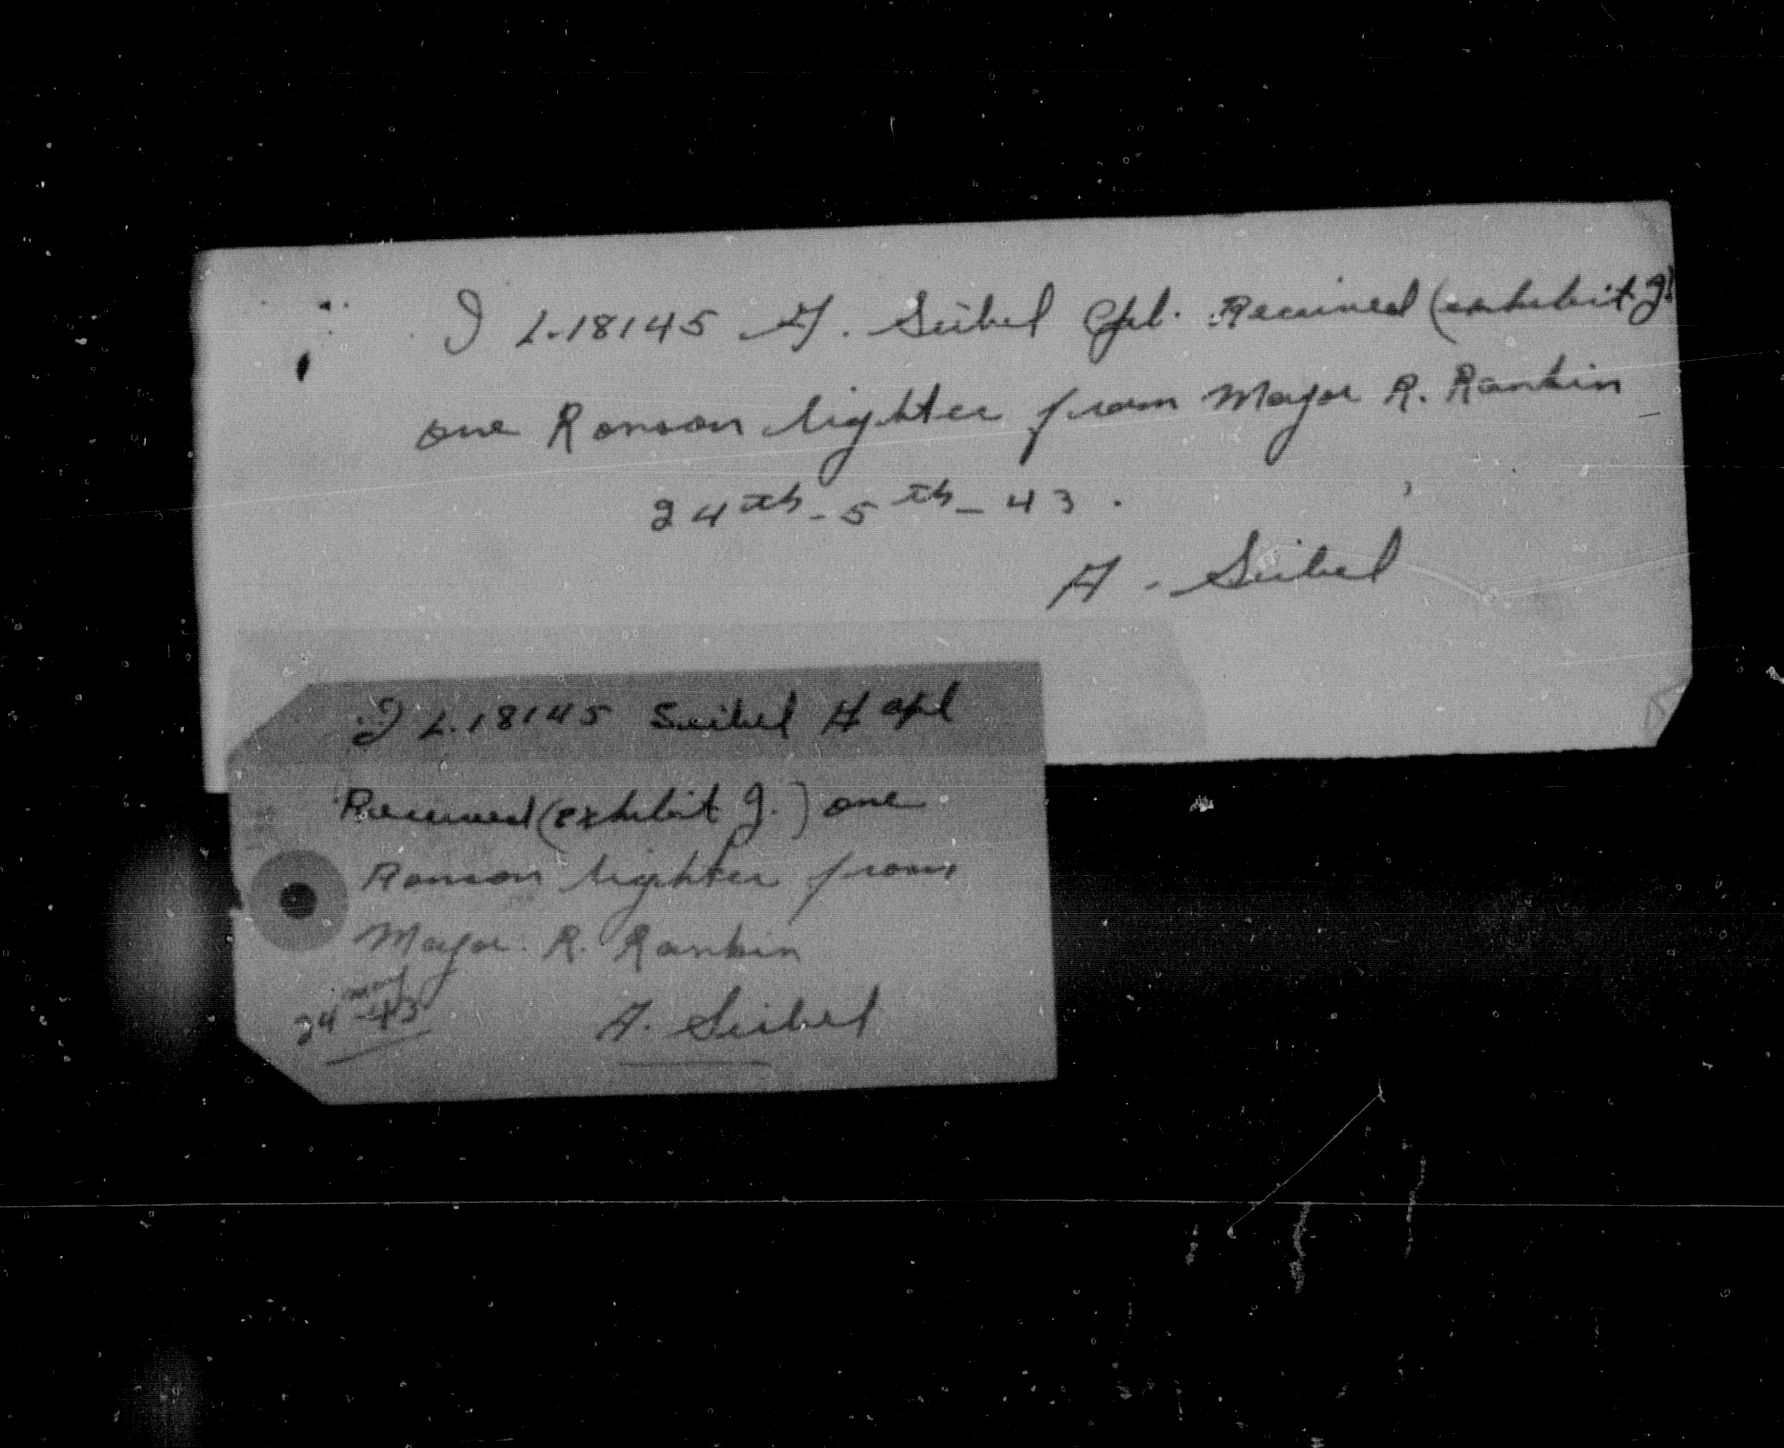 I L.18145 A. Seibel Cpl. Received (exhibit J)
one Ronson lighter from Major R. Rankin
24th - 5th - 43.
A. Seibel
I L.18145 Seibel A Cpl
Received (exhibit J.) one
Ronson lighter from
Major. R. Rankin
24 May 43
A. Seibel